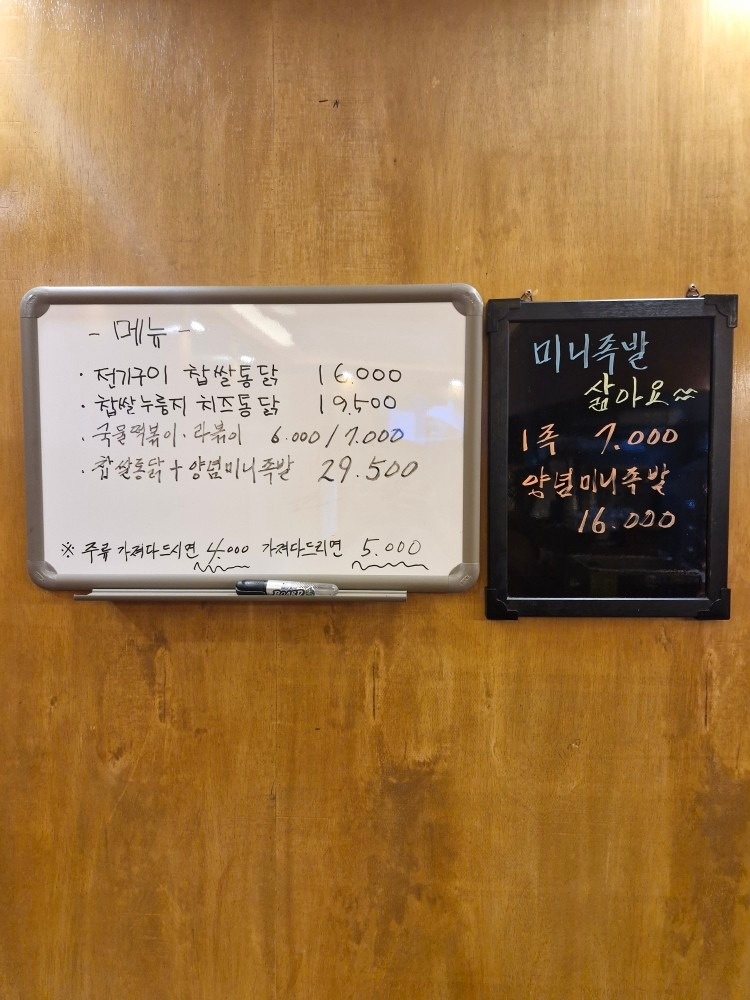 - 메뉴 -
· 전기구이 찹쌀통닭 16.000
· 찹쌀누룽지 치즈통닭 19.500
· 국물떡볶이 · 라볶이 6.000 / 7.000
· 찹쌀통닭 + 양념미니족발 29.500
※ 주류 가져다드시면 4.000 가져다드리면 5.000
BOARD
미니족발
삶아요~~
1족 7.000
양념미니족발
16.000